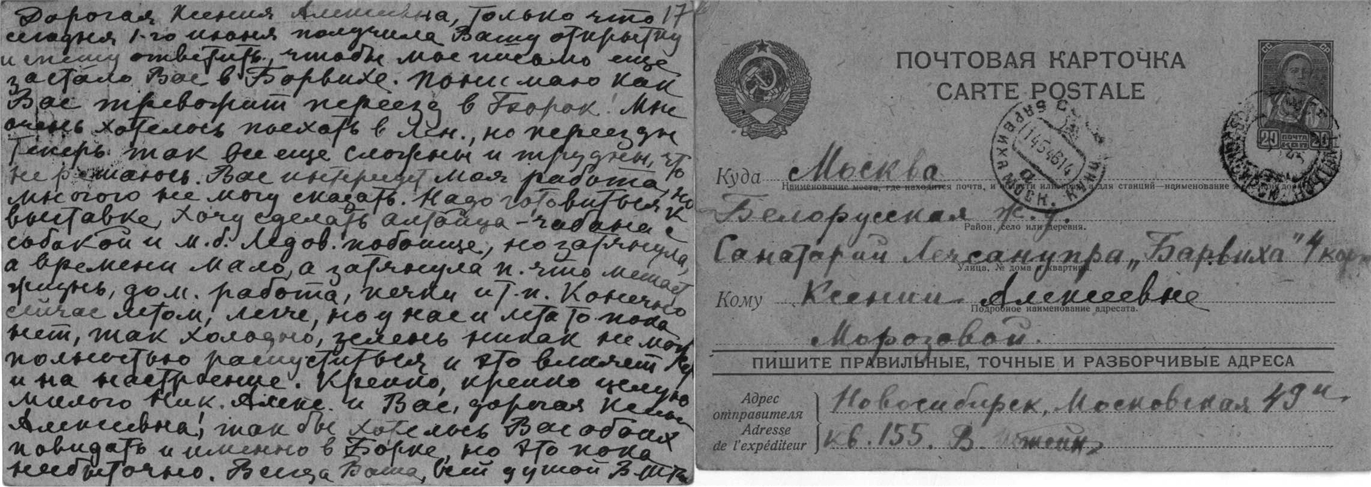 Дорогая Ксения Алексеевна, только что 17
сегодня 1-го июня получила Вашу открытку
и спешу ответить, чтобы мое письмо еще
застало Вас в Барвихе. Понимаю как
Вас тревожит переезд в Борок! Мне
очень хотелось поехать в Лен., но переезды
теперь так все еще сложны и трудны, что
не решаюсь. Вас интерес. моя работа, но
многого не могу сказать. Надо готовиться к
выставке, хочу сделать алтайца-чабана с
собакой и м.б. Ледов. побоище, но затянула,
а времени мало, а затянула п. что мешает
жизнь, дом. работа, печки и т.п. Конечно
сейчас летом, легче, но у нас и лета то пока
нет, так холодно, зелень никак не может
полностью распуститься и это влияет
и на настроение. Крепко, крепко целую
милого Ник. Алекс. и Вас, дорогая Ксения
Алексеевна! так бы хотелось Вас обоих
повидать и именно в Борке, но это пока
несбыточно. Всегда Ваша, всей душой В.
ПОЧТОВАЯ КАРТОЧКА
CARTE POSTALE
СС СС
20 ПОЧТА 20
БАРВИХА МОСК.
Куда Москва
Наименование места, где находится почта, и области или края, а для станций—наименование ж. д.
Белорусская ж. д.
Район, село или деревня.
Санаторий Лечсанупра „Барвиха" 4 кор
Улица, № дома и квартиры.
Кому Ксении Алексеевне
Подробное наименование адресата.
Морозовой.
ПИШИТЕ ПРАВИЛЬНЫЕ, ТОЧНЫЕ И РАЗБОРЧИВЫЕ АДРЕСА
Адрес отправителя
Adresse de l'expéditeur
Новосибирск, Московская 49
кв. 155. В.